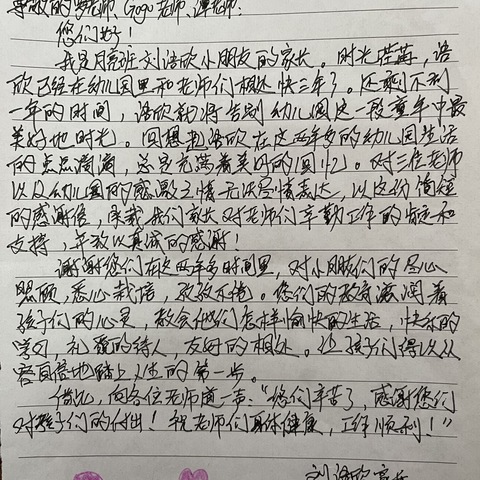 尊敬的罗老师、Gogo老师、谭老师:
您们好!
我是月亮班刘语欣小朋友的家长。时光荏苒,语
欣已经在幼儿园里和老师们相处快三年了。还剩不到
一年的时间,语欣就将告别幼儿园这一段童年中最
美好地时光。回想起语欣在这两年多的幼儿园生活
的点点滴滴,总是充满着美好的回忆。对三位老师
以及幼儿园的感激之情无法尽情表达,以这份简短
的感谢信,承载我们家长对老师们辛勤工作的肯定和
支持,并致以真诚的感谢!
谢谢您们在这两年多时间里,对小朋友们的尽心
照顾,悉心栽培,孜孜不倦。您们的教育滋润着
孩子们的心灵,教会他们怎样愉快的生活,快乐的
学习,礼貌的待人,友好的相处。让孩子们得以从
容自信地踏上人生的第一步。
借此,向各位老师道一声:“您们辛苦了,感谢您们
对孩子们的付出!祝老师们身体健康,工作顺利!”
刘语欣家长